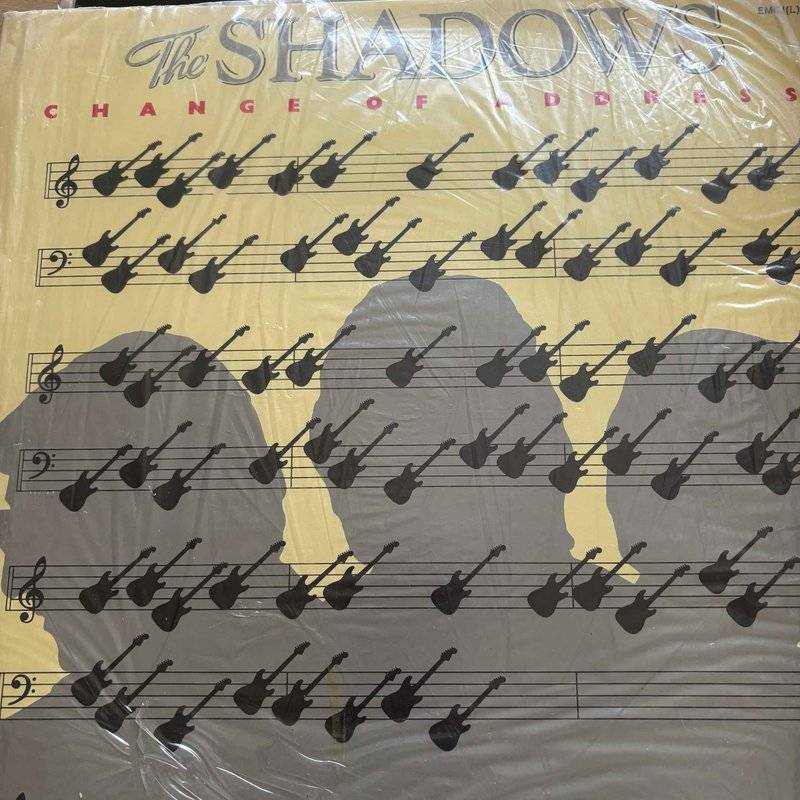 The SHADOWS
CHANGE OF ADDRESS